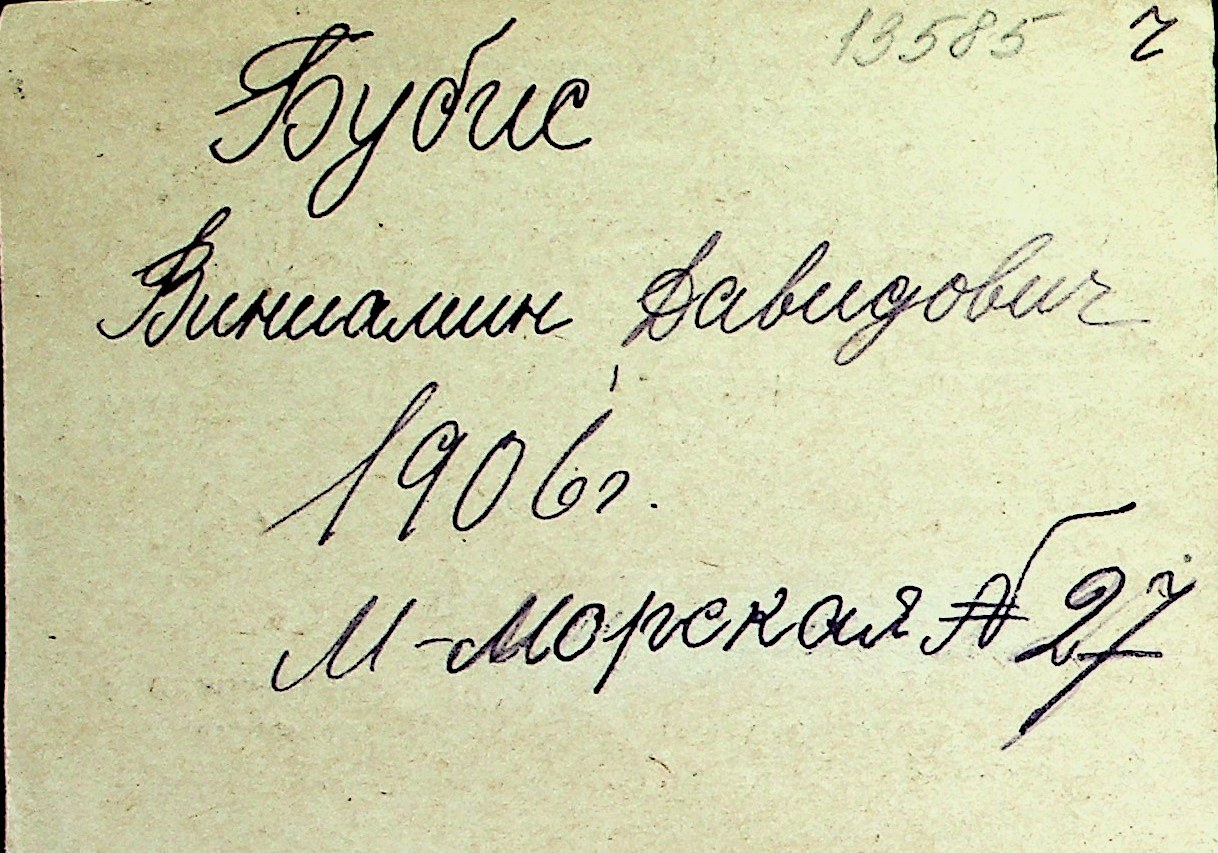 13585 ч
Бубис
Виниамин Давидович
1906 г.
М-Морская № 27